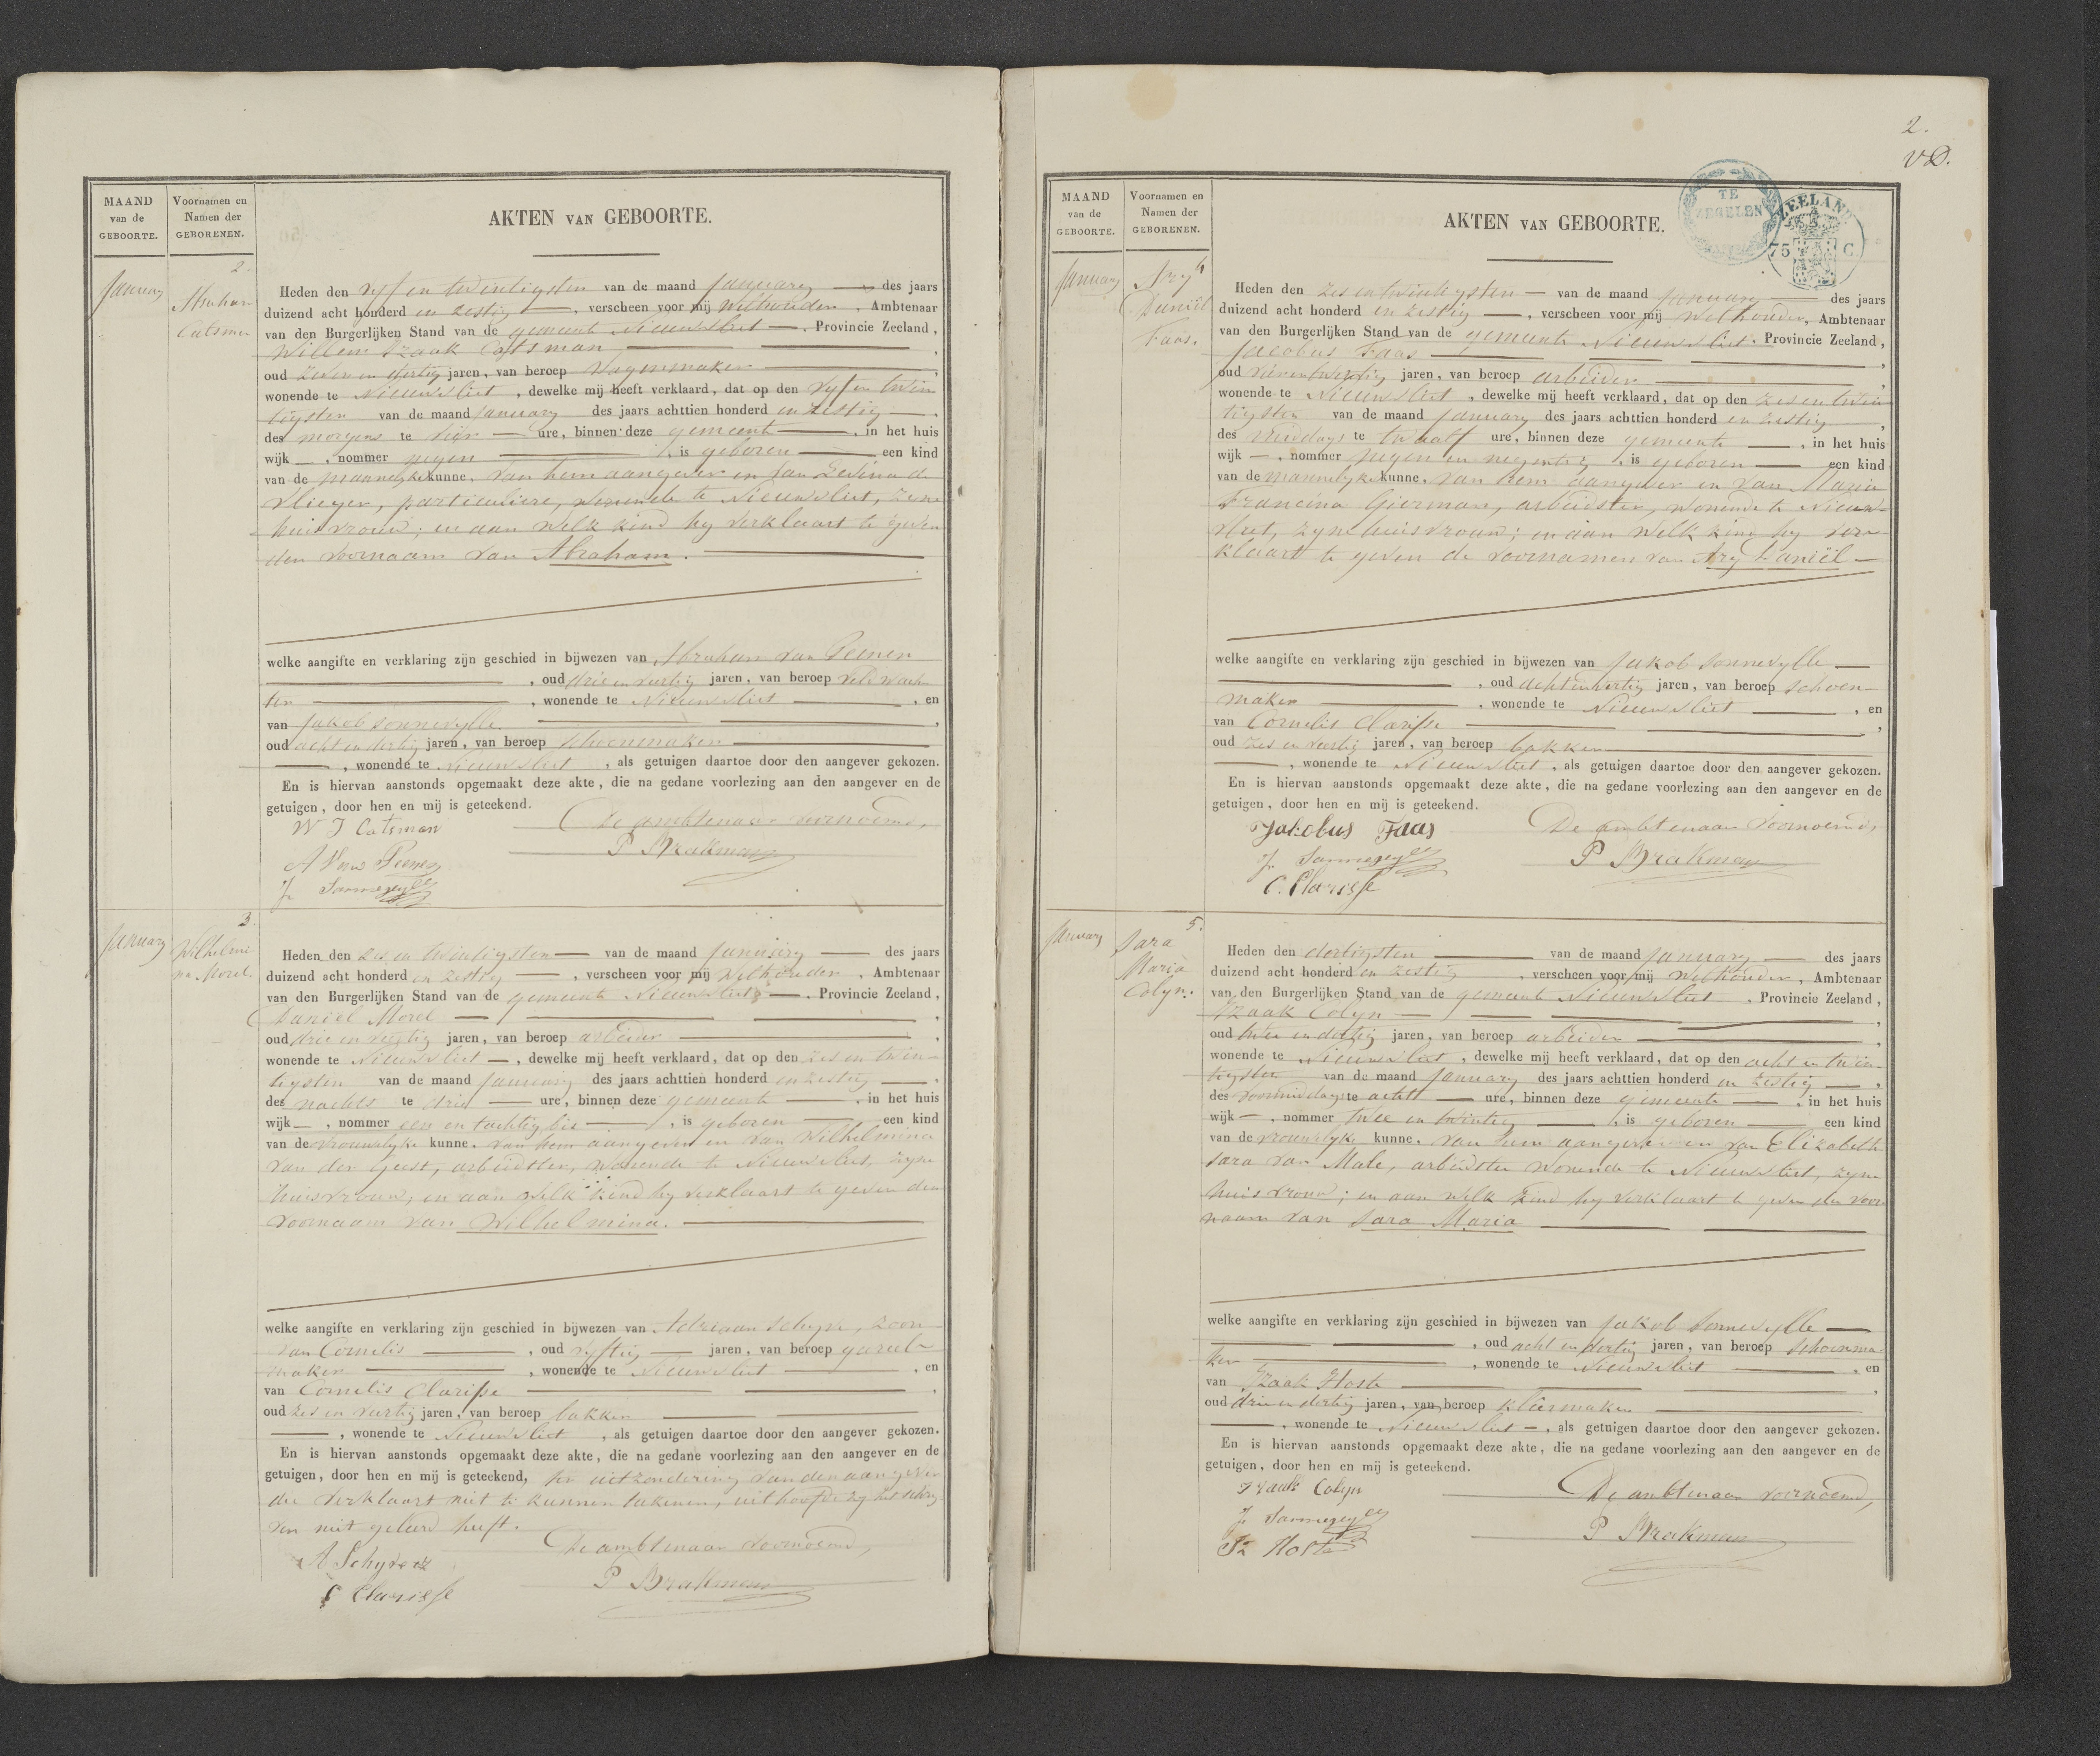 MAAND
van de
GEBOORTE.
Voornamen en
Namen der
GEBORENEN.
AKTEN VAN GEBOORTE.
January
2.
Abraham
Catsman
Heden den vyf en twintigsten van de maand January des jaars
duizend acht honderd en zestig, verscheen voor mij Wethouder, Ambtenaar
van den Burgerlijken Stand van de gemeente Nieuwvliet, Provincie Zeeland,
Willem Izaak Catsman
oud zeven en dertig jaren, van beroep Wagenmaker
wonende te Nieuwvliet, dewelke mij heeft verklaard, dat op den vyf en twin
tigsten van de maand January des jaars achttien honderd en zestig,
des morgens te vier ure, binnen deze gemeente, in het huis
wijk, nommer negen, is geboren een kind
van de mannelyke kunne, van hem aangever en van Levina de
Vlieger, particuliere, wonende te Nieuwvliet, zyne
huisvrouw; en aan welk kind hy verklaart te geven
den voornaam van Abraham.
welke aangifte en verklaring zijn geschied in bijwezen van Abraham van Peenen
, oud drie en veertig jaren, van beroep veldwach
ter, wonende te Nieuwvliet, en
van Jakob Sonnevylle
oud acht en dertig jaren, van beroep schoenmaker
, wonende te Nieuwvliet, als getuigen daartoe door den aangever gekozen.
En is hiervan aanstonds opgemaakt deze akte, die na gedane voorlezing aan den aangever en de
getuigen, door hen en mij is geteekend.
W I Catsman
De ambtenaar voornoemd,
P Brakman
A Van Peenen
J. Sonnevylle
January
3
Wilhelmi
na Morel.
Heden den zes en twintigsten van de maand January des jaars
duizend acht honderd en zestig, verscheen voor mij Wethouder, Ambtenaar
van den Burgerlijken Stand van de gemeente Nieuwvliet, Provincie Zeeland,
Daniel Morel
oud drie en veertig jaren, van beroep arbeider
wonende te Nieuwvliet, dewelke mij heeft verklaard, dat op den zes en twin-
tigsten van de maand January des jaars achttien honderd en zestig,
des nachts te drie ure, binnen deze gemeente, in het huis
wijk, nommer een en tachtig bis, is geboren een kind
van de vrouwelyke kunne, van hem aangever en van Wilhelmina
van der Geest, arbeidster, wonende te Nieuwvliet, zyne
huisvrouw; en aan welk kind hy verklaart te geven den
voornaam van Wilhelmina.
welke aangifte en verklaring zijn geschied in bijwezen van Adriaan Schyve, zoon
van Cornelis, oud vyftig jaren, van beroep gareel-
maker, wonende te Nieuwvliet, en
van Cornelis Clarisse
oud zes en veertig jaren, van beroep bakker
, wonende te Nieuwvliet, als getuigen daartoe door den aangever gekozen.
En is hiervan aanstonds opgemaakt deze akte, die na gedane voorlezing aan den aangever en de
getuigen, door hen en mij is geteekend, ter uitzondering van den aangever
die verklaart niet te kunnen tekenen, uit hoofde hy het schry
ven niet geleerd heeft.
De ambtenaar voornoemd,
A Schyve cz
P Brakman
C Clarisse
2.
VD.
TE
ZEGELEN
ZEELAND
75 C.
MAAND
van de
GEBOORTE.
Voornamen en
Namen der
GEBORENEN.
AKTEN VAN GEBOORTE.
January
4
Ary
Daniël
Faas.
Heden den zes en twintigsten van de maand January des jaars
duizend acht honderd en zestig, verscheen voor mij Wethouder, Ambtenaar
van den Burgerlijken Stand van de gemeente Nieuwvliet, Provincie Zeeland,
Jacobus Faas
oud jaren, van beroep arbeider
wonende te Nieuwvliet, dewelke mij heeft verklaard, dat op den zes en twin
tigsten van de maand January des jaars achttien honderd en zestig,
des middags te twaalf ure, binnen deze gemeente, in het huis
wijk, nommer negen en negentig, is geboren een kind
van de mannelyke kunne, van hem aangever en van Maria
Francina Gierman, arbeidster, wonende te Nieuw-
vliet, zyne huisvrouw; en aan welk kind hy ver
klaart te geven de voornamen van Ary Daniël
welke aangifte en verklaring zijn geschied in bijwezen van Jakob Sonnevylle
, oud acht en dertig jaren, van beroep schoen-
maker, wonende te Nieuwvliet, en
van Cornelis Clarisse
oud zes en veertig jaren, van beroep bakker
, wonende te Nieuwvliet, als getuigen daartoe door den aangever gekozen.
En is hiervan aanstonds opgemaakt deze akte, die na gedane voorlezing aan den aangever en de
getuigen, door hen en mij is geteekend.
Jakobus Faas
De ambtenaar voornoemd,
J. Sonnevylle
P Brakman
C. Clarisse
January
5.
Sara
Maria
Colyn.
Heden den dertigsten van de maand January des jaars
duizend acht honderd en zestig, verscheen voor mij Wethouder, Ambtenaar
van den Burgerlijken Stand van de gemeente Nieuwvliet, Provincie Zeeland,
Izaak Colyn
oud twee en dertig jaren, van beroep arbeider
wonende te Nieuwvliet, dewelke mij heeft verklaard, dat op den acht en twin-
tigsten van de maand January des jaars achttien honderd en zestig,
des voormiddags te acht ure, binnen deze gemeente, in het huis
wijk, nommer twee en twintig, is geboren een kind
van de vrouwelyke kunne, van hem aangever en van Elizabeth
Sara van Male, arbeidster wonende te Nieuwvliet, zyne
huisvrouw; en aan welk kind hy verklaart te geven den voor
naam van Sara Maria
welke aangifte en verklaring zijn geschied in bijwezen van Jakob Sonnevylle
, oud acht en dertig jaren, van beroep schoenma
ker, wonende te Nieuwvliet, en
van Izaak Hoste
oud drie en dertig jaren, van beroep kleermaker
, wonende te Nieuwvliet, als getuigen daartoe door den aangever gekozen.
En is hiervan aanstonds opgemaakt deze akte, die na gedane voorlezing aan den aangever en de
getuigen, door hen en mij is geteekend.
Izaak Colyn
De ambtenaar voornoemd,
J. Sonnevylle
P Brakman
Iz Hoste